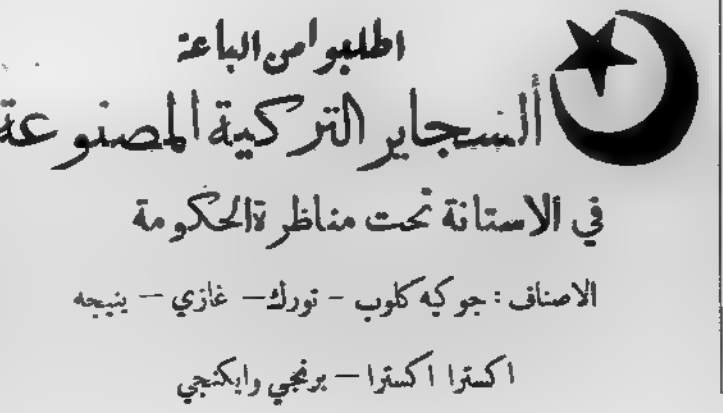 اطلبوا من الباعة
ألسجاير التركية المصنوعة
في الاستانة تحت مناظرة الحكومة
الاصناف : جوكيه كلوب - تورك - غازي - ينيجه
اكسترا اكسترا - برنجي وايكنجي